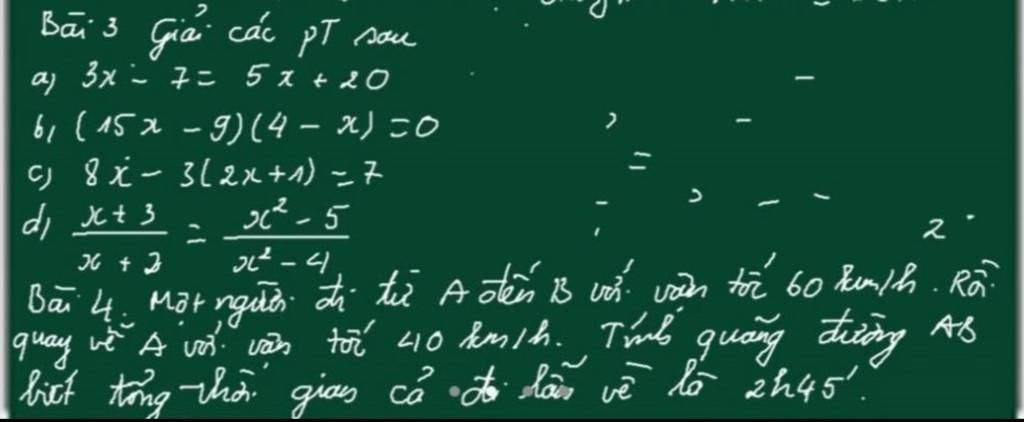 Bài 3 Giải các pT sau
a) 3x - 7 = 5x + 20
b, (15x - 9)(4 - x) = 0
c) 8x - 3(2x+1) = 7
d) \frac{x+3}{x+2} = \frac{x² - 5}{x² - 4}
Bài 4. Một người đi từ A đến B với vận tốc 60 km/h. Rồi
quay về A với vận tốc 40 km/h. Tính quãng đường AB
biết tổng thời gian cả đi lẫn về là 2h45'.